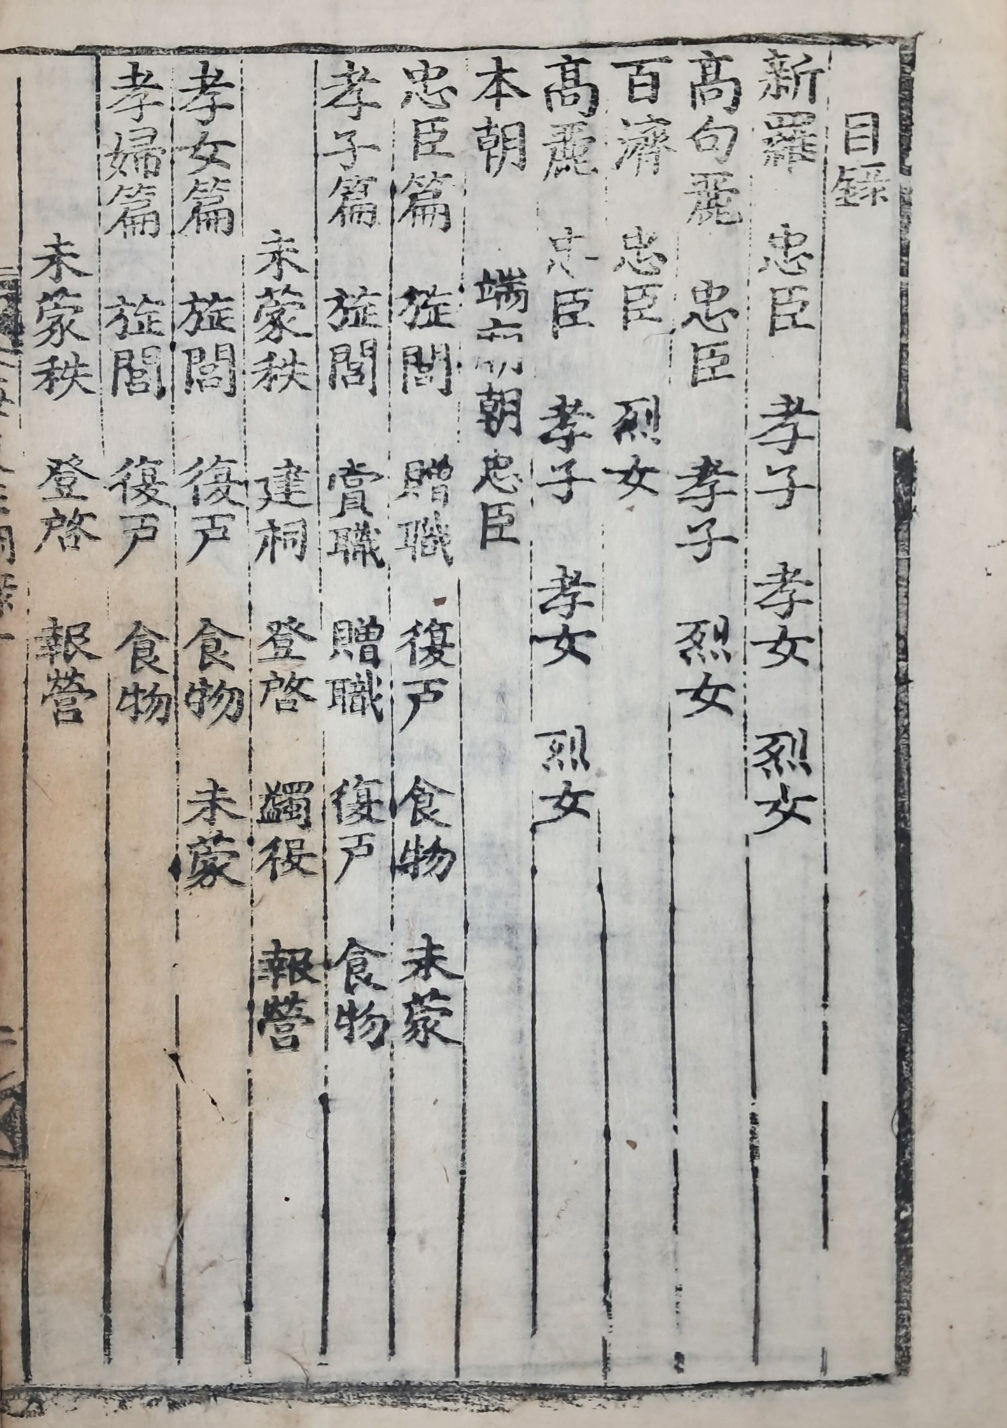 目錄
新羅 忠臣 孝子 孝女 烈女
高句麗 忠臣 孝子 烈女
百濟 忠臣 烈女
高麗 忠臣 孝子 孝女 烈女
本朝 端 朝忠臣
忠臣篇 㫌閭 贈職 復戶 食物 未蒙
孝子篇 㫌閭 賞職 贈職 復戶 食物
未蒙秩 建祠 登啓 蠲役 報營
孝女篇 㫌閭 復戶 食物 未蒙
孝婦篇 㫌閭 復戶 食物
未蒙秩 登啓 報營